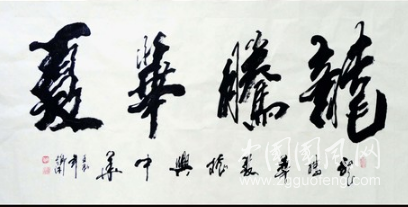 龍騰華夏
龙腾华夏振興中華
中国国风网
www.zgguofeng.com